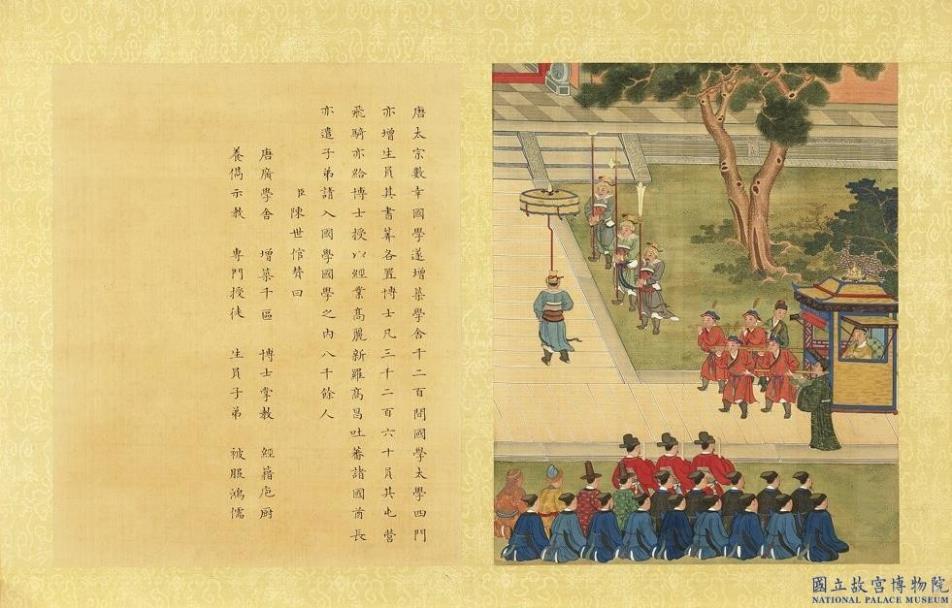 唐太宗數幸國學遂增築學舍千二百間國學太學四門
亦增生員其書筭各置博士凡三千二百六十員其屯營
飛騎亦給博士授以經業髙麗新羅髙昌吐蕃諸國酋長
亦遣子弟請入國學國學之內八千餘人
臣陳世倌贊曰
唐廣學舍 增築千區 博士掌教 經籍庖厨
養儁示教 專門授徒 生員子弟 被服鴻儒
國立故宮博物院
NATIONAL PALACE MUSEUM